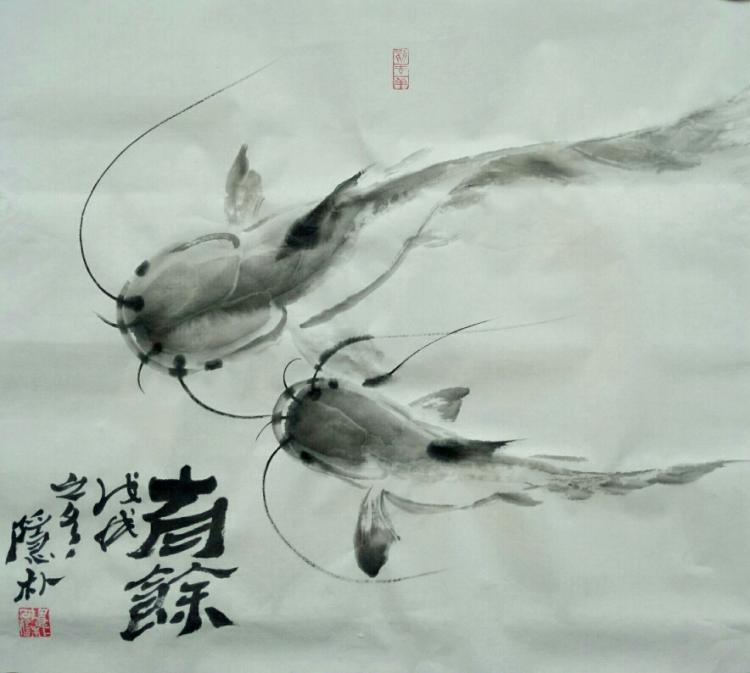 有餘
戊戌
之冬
隱朴